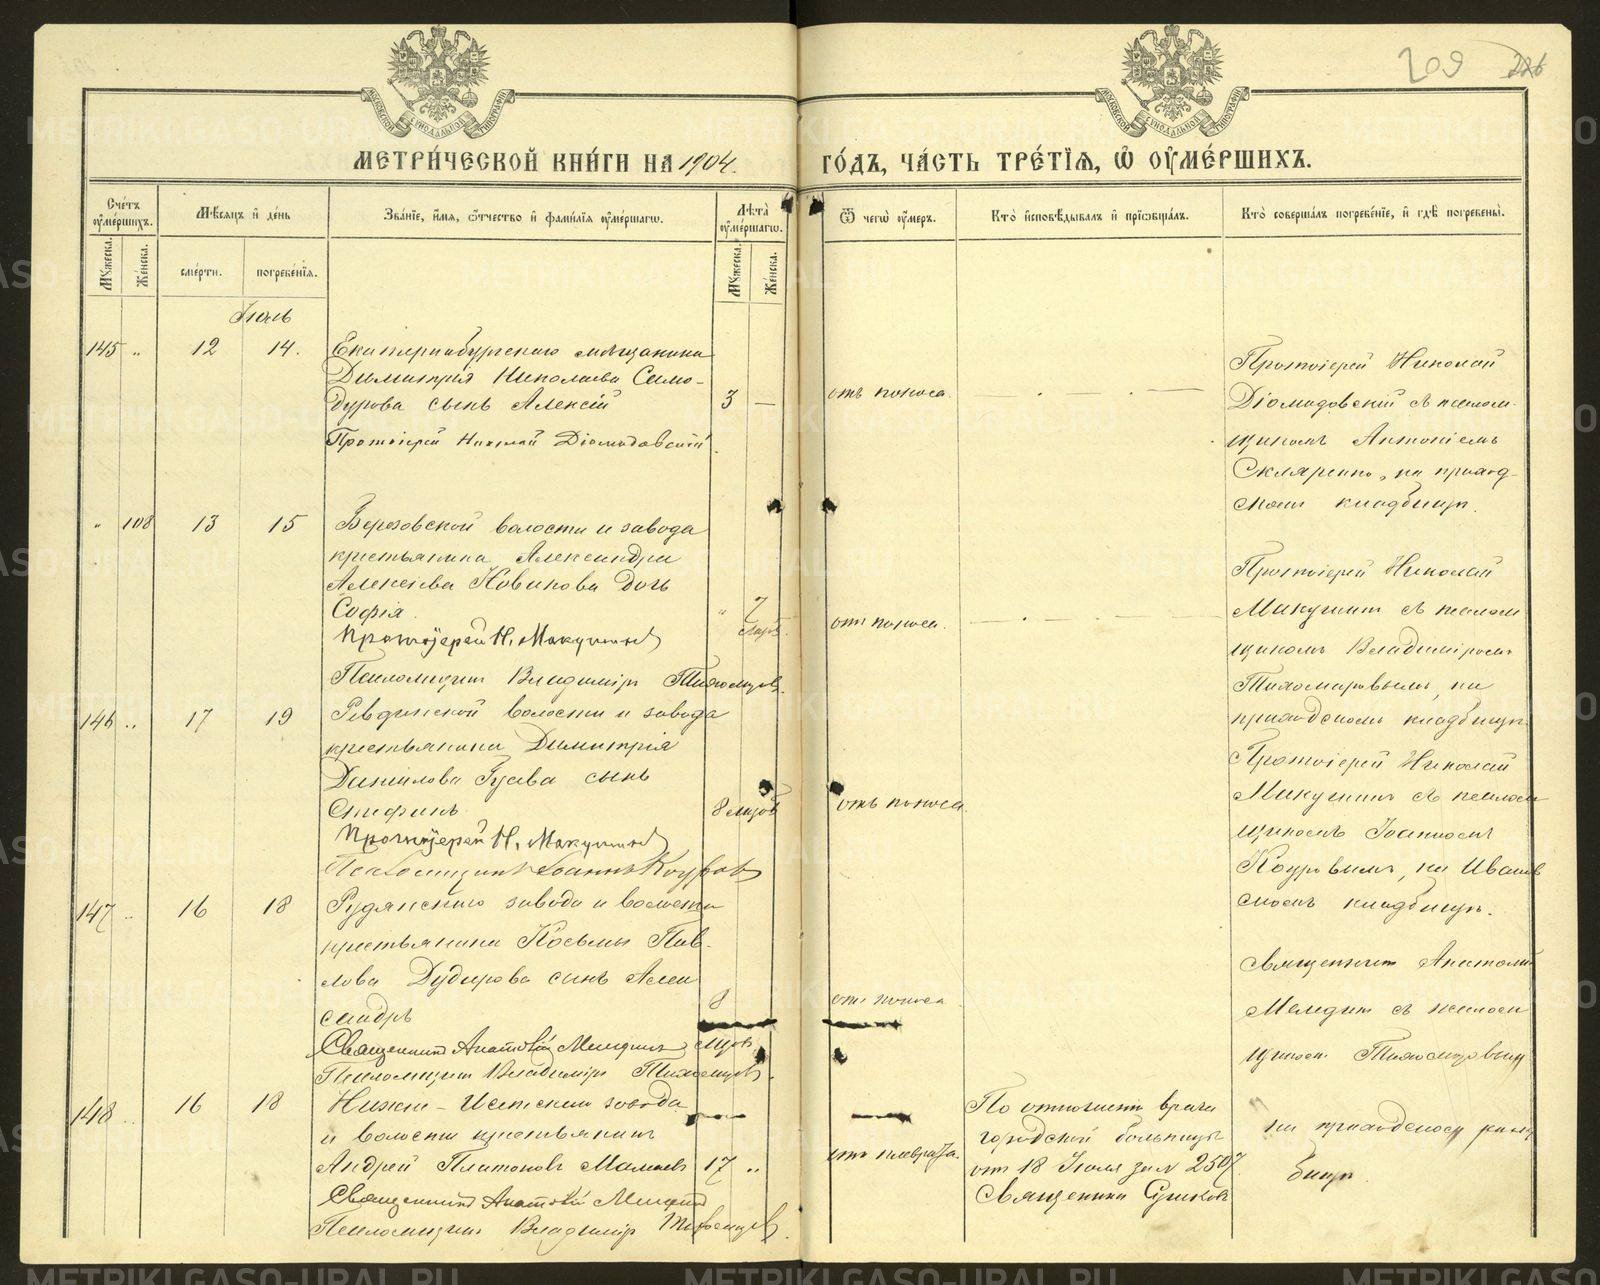 209 226
МЕТРИ́ЧЕСКОЙ КНИ́ГИ НА 1904. ГО́ДЪ, ЧА́СТЬ ТРЕ́ТІѦ, Ѽ ОУМЕ́РШИХЪ.
Сче́тъ оуме́ршихъ.
Мѣ́сяцъ и де́нь
Зва́ніе, и́мя, ѻ́тчество и фами́лія оуме́ршагѡ.
Лѣта̀ оуме́ршагѡ.
Ѿ чегѡ̀ оу́меръ.
Кто̀ исповѣ́дывалъ и пріѡбща́лъ.
Кто̀ соверша́лъ погребе́ніе, и гдѣ̀ погребены̀.
Му́жеска.
Же́нска.
сме́рти.
погребе́нія.
Му́жеска.
Же́нска.
Іюль
145 „ 12 14.
Екатеринбургскаго мѣщанина
Димитрія Николаева Само-
дурова сынъ Алексій
Протоіерей Николай Діомидовскій
3 —
отъ поноса.
Протоіерей Николай
Діомидовскій съ псалом-
щикомъ Антоніемъ
Скляренко, на приход-
скомъ кладбищѣ.
„ 108 13 15
Березовской волости и завода
крестьянина Александра
Алексіева Новикова дочь
Софія.
Протоіерей Н. Макушинъ
Псаломщикъ Владиміръ Тихомировъ.
„ 7
мѣсяц.
отъ поноса.
Протоіерей Николай
Макушинъ съ псалом-
щикомъ Владиміромъ
Тихомировымъ, на
приходскомъ кладбищѣ.
146 „ 17 19
Ревдинской волости и завода
крестьянина Димитрія
Данилова Гусева сынъ
Стефанъ
Протоіерей Н. Макушинъ
Псаломщикъ Іоаннъ Коуровъ
8 мѣсяцовъ
отъ поноса.
Протоіерей Николай
Макушинъ съ псалом-
щикомъ Іоанномъ
Коуровымъ, на Иванов-
скомъ кладбищѣ.
147 „ 16 18
Рудянскаго завода и волости
крестьянина Косьмы Пав-
лова Дударова сынъ Алек-
сандръ
Священникъ Анатолій
Псаломщикъ Владиміръ Тихомировъ.
8
мѣсяцовъ
отъ поноса
Священникъ Анатолій
съ псалом-
щикомъ Тихомировымъ
148 „ 16 18
Нижне-Исетскаго завода
и волости крестьянинъ
Андрей Платоновъ
Священникъ Анатолій
Псаломщикъ Владиміръ Тихомировъ.
17 „
отъ плеврита.
По отношенію врача
городской больницы
отъ 18 Іюля за № 2507
Священника
на приходскомъ клад-
бищѣ.
METRIKI.GASO-URAL.RU